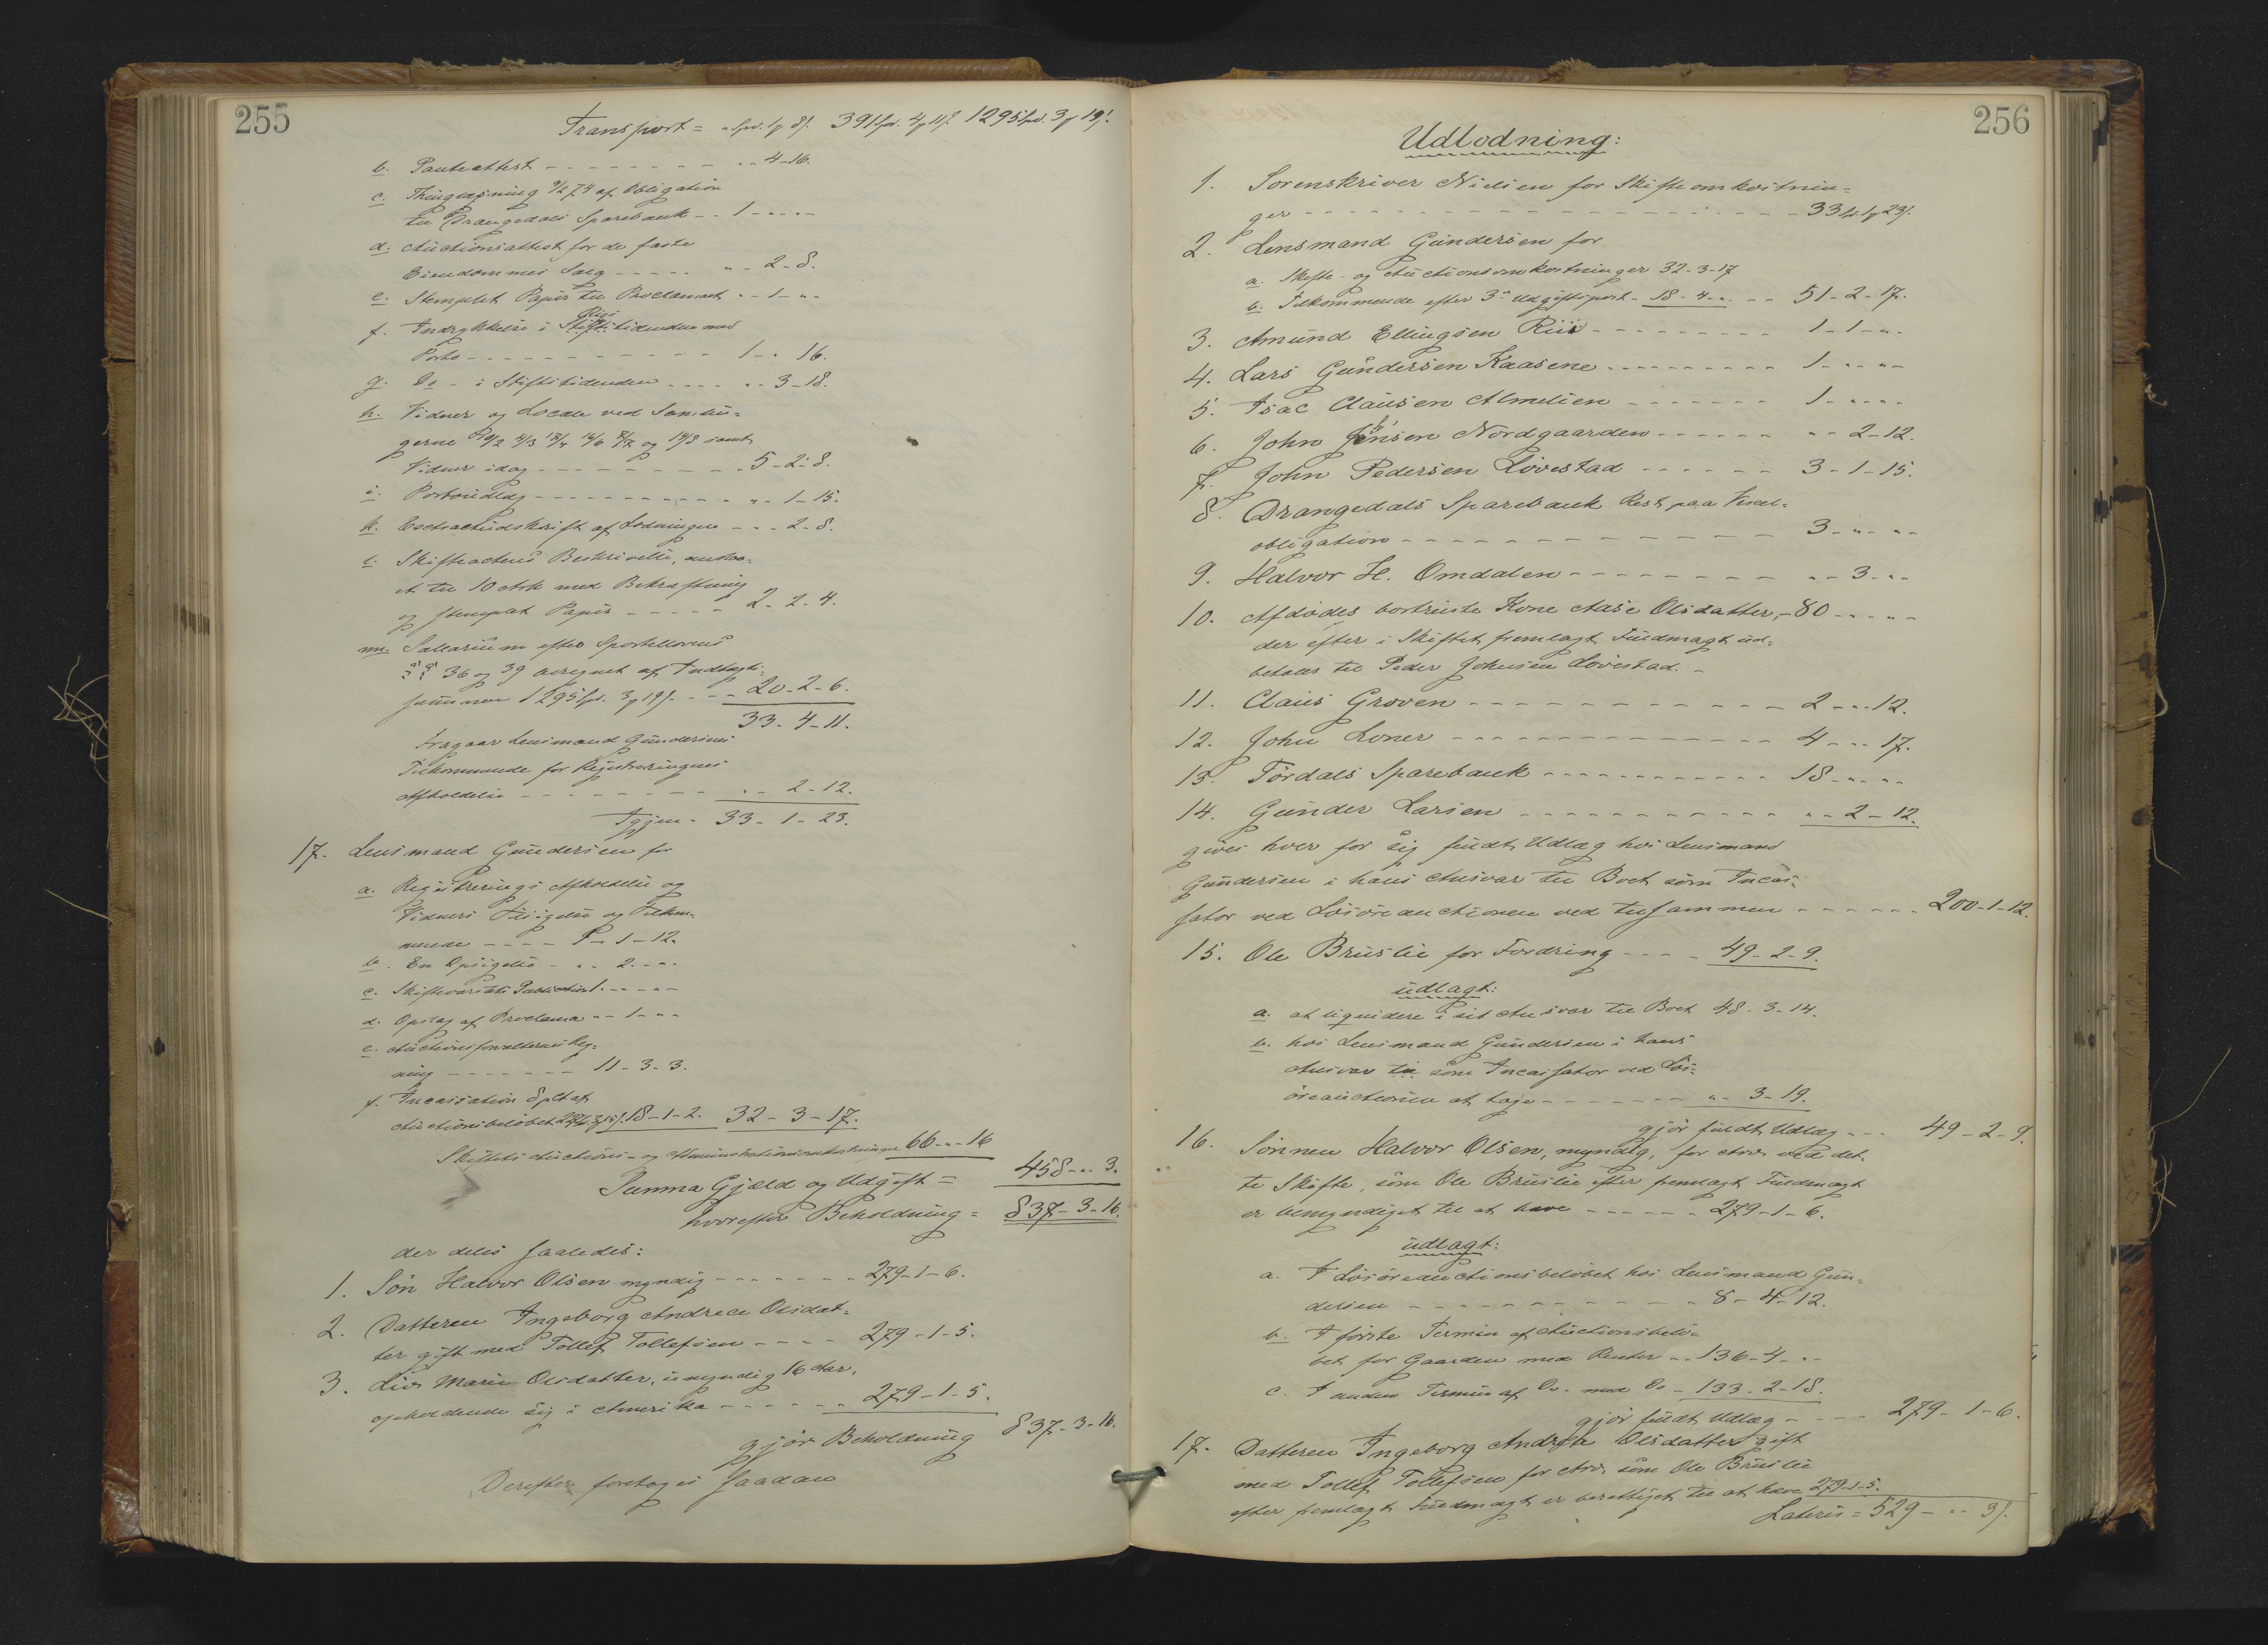 255
Transport = „ Spd. 1 ȷ 8 ẞ. 391 Spd. 4 ȷ 11 ẞ. 1295 Spd. 3 ȷ 19 ẞ.
b. Panteattest - - - - „ - 4 - 16.
c. Thinglæsning 9/2 74 af Obligation
til Drangedals Sparebank - - 1 - „ - „
d. Auctionsattest for de faste
Eiendommes Salg - - - - „ - 2 - 8.
e. Stemplet Papir til Proclamaet „ - 1 - „
f. Indrykkelse i Rigstidenden med
Porto - - - - 1 - „ 16.
g. Do - i Stiftstidenden - - - - „ - 3 - 18.
h. Vidner og Locale ved Samlin=
gerne og 19/8 samt
Vidner idag - - - - 5 - 2 - 8.
i. Portoudlæg - - - - „ - 1 - 15.
k. Extractudskrift af Lodningen - - „ - 2 - 8.
l. Skifteactens Beskrivelse, anslaa=
et til 10 Ark med Bekræftning
og stemplet Papir - - - - 2 - 2 - 4.
m. Sallarium efter Sportellovens
§§ 36 og 39 beregnet af Indtægts=
summen 1295 Spd. 3 ȷ 19 ẞ. - - - - 20 - 2 - 6.
33 - 4 - 11.
Fragaar Lensmand Gundersens
Tilkommende for Registreringens
Afholdelse - - - - „ - 2 - 12.
Igjen - 33 - 1 - 23.
17. Lensmand Gundersen for
a. Registrerings Afholdelse og
Vidners Tilsigelse og Tilkom-
mende - - - - 1 - 12.
b. En Opsigelse - „ - 2 - „
c. Skiftevarslets Publication 1 - „ - „
d. Opslag af Proclama - „ - 1 - „
e. Auctionsforvalterens Reg=
ning - - - - 11 - 3 - 3.
f. Incassation 8 pCt af
Auctionsbeløbet 18 - 1 - 2. 32 - 3 - 17.
Skiftets Auctions- og Administrationsomkostninger 66 - „ - 16
Summa Gjæld og Udgift = 458 - „ 3.
hvorefter Beholdning = 837 - 3 - 16.
der deles saaledes:
1. Søn Halvor Olsen myndig - - - - 279 - 1 - 6.
2. Datteren Ingeborg Andrea Olsdat=
ter gift med Tollef Tollefsen - - - - 279 - 1 - 5.
3. Liv Marie Olsdatter, umyndig 16 Aar,
opholdende sig i Amerika - - - - 279 - 1 - 5.
gjør Beholdning 837 - 3 - 16.
Derefter foretoges saadan
256
Udlodning:
1. Sorenskriver Nielsen for Skifteomkostnin=
ger - - - - 33 Spd. 1 ȷ 23 ẞ.
2. Lensmand Gundersen for
a. Skifte- og Auctionsomkostninger 32 - 3 - 17
b. Tilkommende efter 3die Udgiftspost - 18 - 4 - „ - - 51 - 2 - 17.
3. Amund Ellingsen Riis - - - - 1 - 1 - „
4. Lars Gundersen Kaasene - - - - 1 - „ - „
5. Isac Clausen Almelien - - - - 1 - „ - „
6. John Jensen Nordgaarden - - - - „ - 2 - 12.
7. John Pedersen Løvestad - - - - 3 - 1 - 15.
8. Drangedals Sparebank Rest paa Vexel=
obligation - - - - 3 - „ - „
9. Halvor H. Omdalen - - - - „ - 3 - „
10. Afdødes Kone Aase Olsdatter, - 80 - „ - „
der efter i Skiftet fremlagt Fuldmagt ud=
betales til Peder Johnsen Løvestad. -
11. Claus Groven - - - - 2 - „ - 12.
12. John Loner - - - - 4 - „ - 17.
13. Tørdals Sparebank - - - - 18 - „ - „
14. Gunder Larsen - - - - „ - 2 - 12.
gives hver for sig fuldt Udlæg hos Lensmand
Gundersen i hans Ansvar til Boet som Incas=
sator ved Løsøreauctionen ved tilsammen - - - - 200 - 1 - 12.
15. Ole Bruslie for Fordring - - - - 49 - 2 - 9.
udlagt:
a. at liquidere i sit Ansvar til Boet 48 - 3 - 14.
b. hos Lensmand Gundersen i hans
Ansvar til som Incassator ved Løs=
øreauctionen at tage - - - - „ - 3 - 19.
gjør fuldt Udlæg - - - 49 - 2 - 9.
16. Sønnen Halvor Olsen, myndig, for Arv ved det-
te Skifte, som Ole Bruslie efter fremlagt Fuldmagt
er bemyndiget til at hæve - - - - 279 - 1 - 6.
udlagt:
a. I Løsøreauctionsbeløbet hos Lensmand Gun=
dersen - - - - 8 - 4 - 12.
b. I første Termin af Auctionsbelø=
bet for Gaarden med Renter - - 136 - 4 - „
c. I anden Termin af Do. med Do - 133 - 2 - 18.
gjør fuldt Udlæg - - - - 279 - 1 - 6.
17. Datteren Ingeborg Andrea Olsdatter gift
med Tollef Tollefsen for Arv, som Ole Bruslie
efter fremlagt Fuldmagt er berettiget til at hæve 279 - 1 - 5.
Lateris = 529 - „ - 3 ẞ.